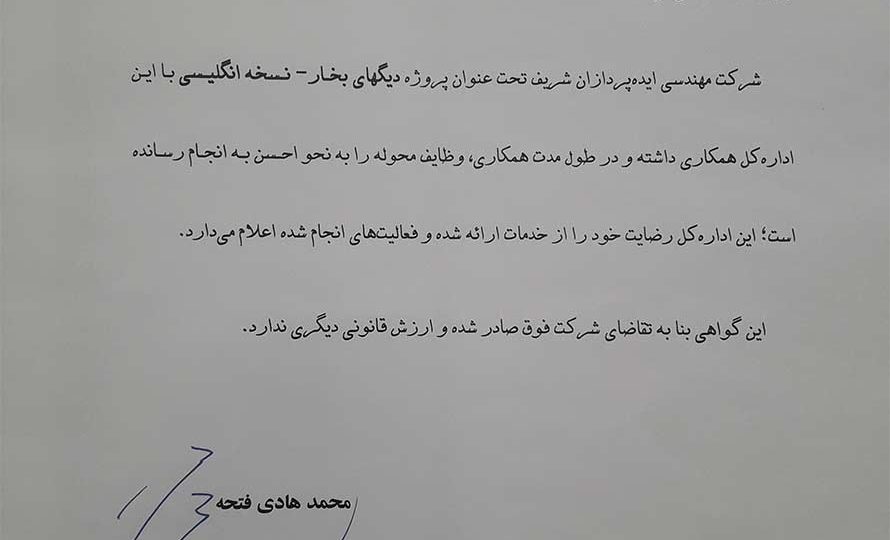 شرکت مهندسی ایده‌پردازان شریف تحت عنوان پروژه دیگهای بخار – نسخه انگلیسی با این
اداره‌کل همکاری داشته و در طول مدت همکاری، وظایف محوله را به نحو احسن به انجام رسانده
است؛ این اداره‌کل رضایت خود را از خدمات ارائه شده و فعالیت‌های انجام شده اعلام می‌دارد.
این گواهی بنا به تقاضای شرکت فوق صادر شده و ارزش قانونی دیگری ندارد.
محمد هادی فتحه